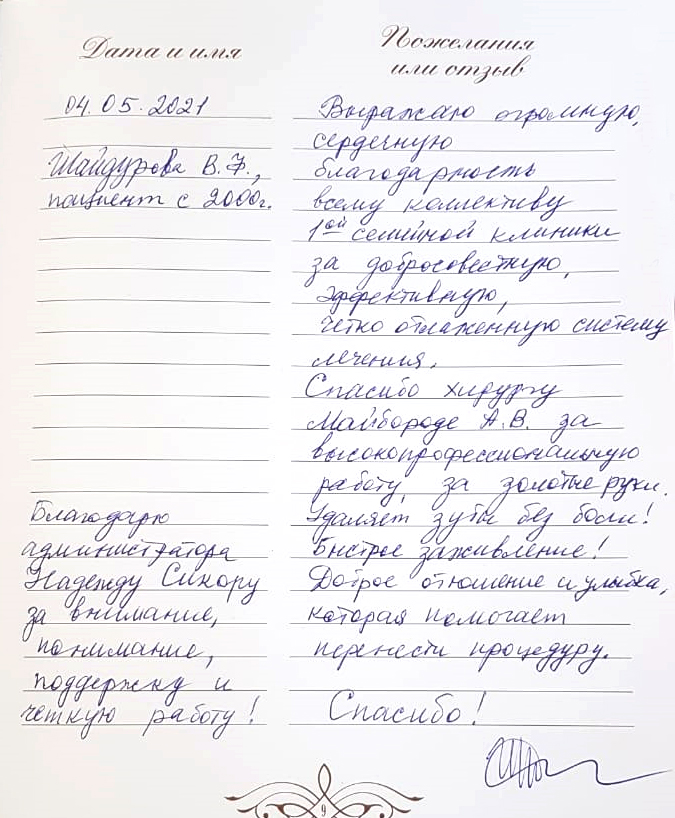 Дата и имя
04.05.2021
Шайдурова В.Ф.,
пациент с 2000г.
Благодарю
администратора
Надежду Сикору
за внимание,
понимание,
поддержку и
четкую работу!
Пожелания
или отзыв
Выражаю огромную,
сердечную
благодарность
всему коллективу
1ой семейной клиники
за добросовестную,
эффективную,
четко отлаженную систему
лечения.
Спасибо хирургу
Майбороде А.В. за
высокопрофессиональную
работу, за золотые руки.
Удаляет зубы без боли!
Быстрое заживление!
Доброе отношение и улыбка,
которая помогает
перенести процедуру.
Спасибо!
9